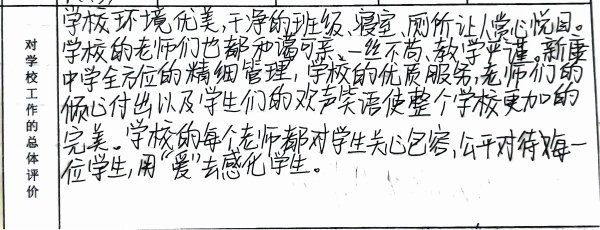 对学校工作的总体评价
学校环境优美,干净的班级、寝室、厕所让人赏心悦目。
学校的老师们也都和谐可亲、一丝不苟、教学严谨。新康
中学全方位的精细管理,学校的优质服务,老师们的
倾心付出以及学生们的欢声笑语使整个学校更加的
完美。学校的每个老师都对学生关心包容,公平对待每一
位学生,用“爱”去感化学生。